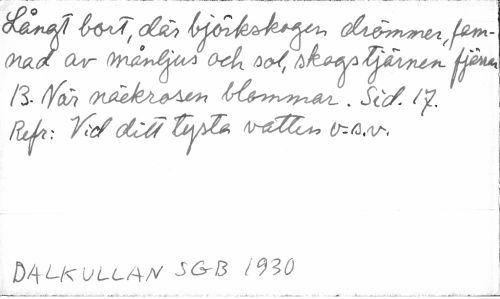 Långt bort, där björkskogen drömmer, fam-
nad av månljus och sol, skogstjärnen fjärran
13. När näckrosen blommar. Sid. 17.
Refr: Vid ditt tysta vatten o.s.v.
DALKULLAN SGB 1930